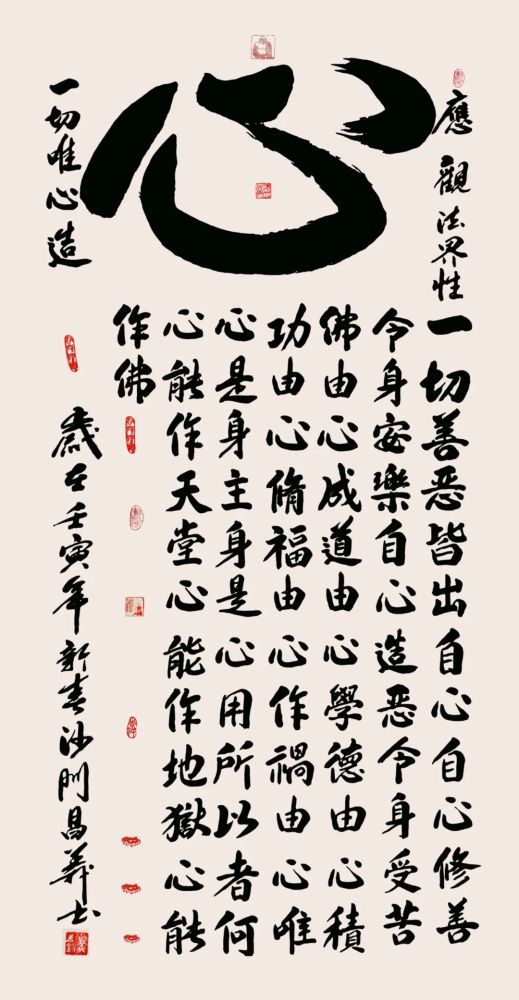 心
應觀法界性
一切唯心造
一切善恶皆出自心自心修善
令身安樂自心造恶令身受苦
佛由心成道由心學德由心積
功由心脩福由心作禍由心唯
心是身主身是心用所以者何
心能作天堂心能作地獄心能
作佛
歲在壬寅年新春沙門昌義书